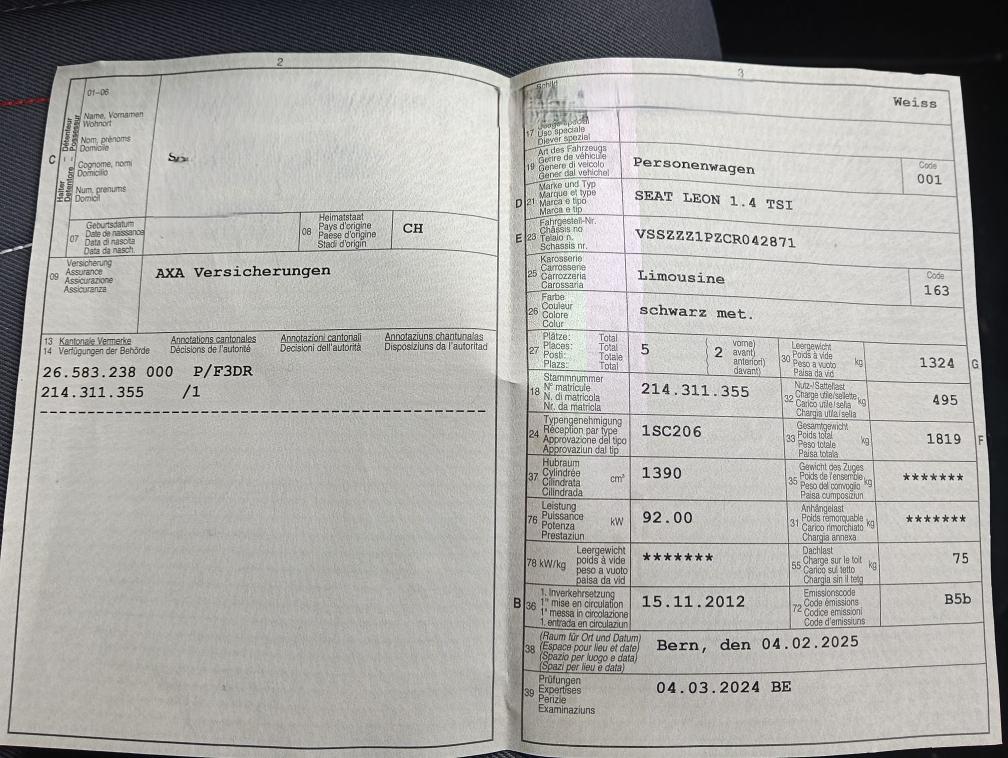 2
01-06
C
Halter Détenteur
Detentore Possessur
Name, Vornamen
Wohnort
Nom, prénoms
Domicile
Cognome, nomi
Domicilio
Num, prenums
Domicil
07
Geburtsdatum
Date de naissance
Data di nascita
Data da nasch.
08
Heimatstaat
Pays d'origine
Paese d'origine
Stadi d'origin
CH
09
Versicherung
Assurance
Assicurazione
Assicuranza
AXA Versicherungen
13 Kantonale Vermerke Annotations cantonales Annotazioni cantonali Annotaziuns chantunalas
14 Verfügungen der Behörde Décisions de l'autorité Decisioni dell'autorità Disposiziuns da l'autoritad
26.583.238 000 P/F3DR
214.311.355 /1
3
Schild
Weiss
17
Usage spécial
Uso speciale
Diever spezial
19
Art des Fahrzeugs
Genre de véhicule
Genere di veicolo
Gener dal vehichel
Personenwagen
Code
001
D 21
Marke und Typ
Marque et type
Marca e tipo
Marca e tip
SEAT LEON 1.4 TSI
E 23
Fahrgestell-Nr.
Châssis no
Telaio n.
Schassis nr.
VSSZZZ1PZCR042871
25
Karosserie
Carrosserie
Carrozzeria
Carossaria
Limousine
Code
163
26
Farbe
Couleur
Colore
Colur
schwarz met.
27
Plätze: Total
Places: Total
Posti: Totale
Plazs: Total
5
2
vorne)
avant)
anteriori)
davant)
30
Leergewicht
Poids à vide
Peso a vuoto
Paisa da vid
kg
1324
G
18
Stammnummer
N° matricule
N. di matricola
Nr. da matricla
214.311.355
32
Nutz-/Sattellast
Charge utile/sellette
Carico utile/sella
Chargia utila/sella
kg
495
24
Typengenehmigung
Réception par type
Approvazione del tipo
Approvaziun dal tip
1SC206
33
Gesamtgewicht
Poids total
Peso totale
Paisa totala
kg
1819
F
37
Hubraum
Cylindrée
Cilindrata
Cilindrada
cm³
1390
35
Gewicht des Zuges
Poids de l'ensemble
Peso del convoglio
Paisa cumposiziun
kg
*******
76
Leistung
Puissance
Potenza
Prestaziun
kW
92.00
31
Anhängelast
Poids remorquable
Carico rimorchiato
Chargia annexa
kg
*******
78 kW/kg
Leergewicht
poids à vide
peso a vuoto
paisa da vid
*******
55
Dachlast
Charge sur le toit
Carico sul tetto
Chargia sin il tetg
kg
75
B 36
1. Inverkehrsetzung
1re mise en circulation
1a messa in circolazione
1. entrada en circulaziun
15.11.2012
72
Emissionscode
Code émissions
Codice emissioni
Code d'emissiuns
B5b
38
(Raum für Ort und Datum)
(Espace pour lieu et date)
(Spazio per luogo e data)
(Spazi per lieu e data)
Bern, den 04.02.2025
39
Prüfungen
Expertises
Perizie
Examinaziuns
04.03.2024 BE